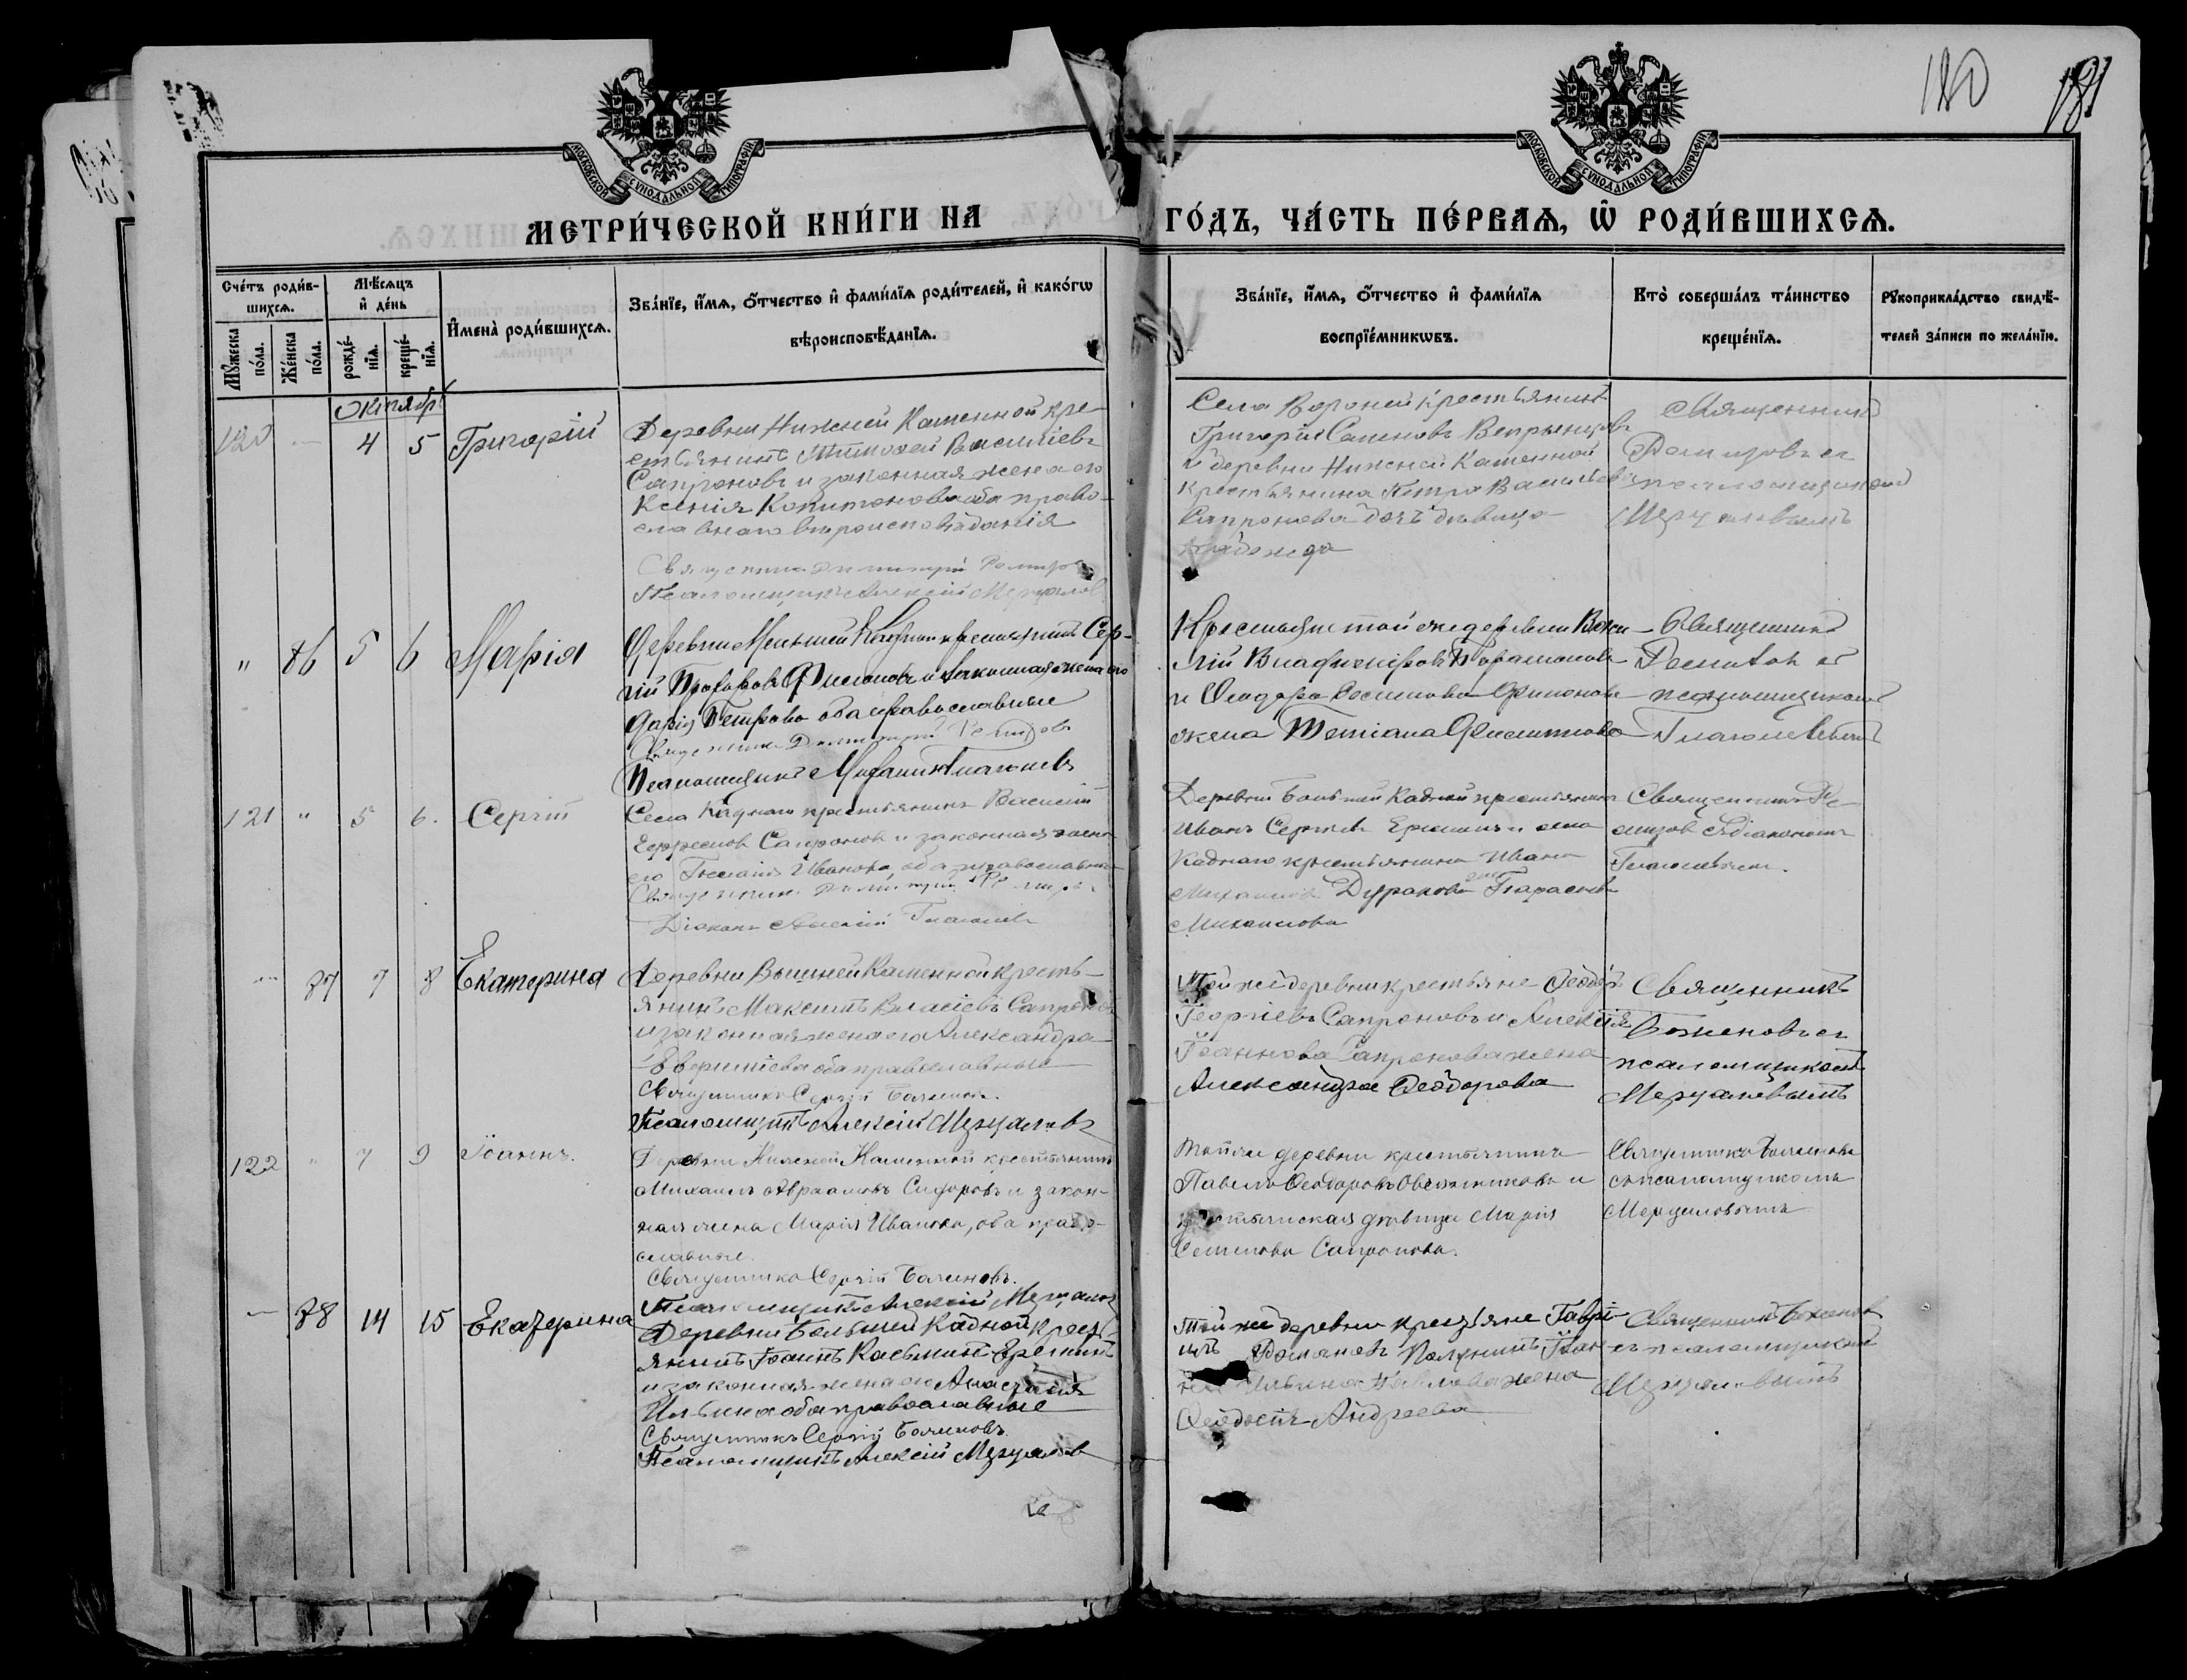 180 181
МОСКОВСКОЙ СѴНОДАЛЬНОЙ ТИПОГРАФІИ
МОСКОВСКОЙ СѴНОДАЛЬНОЙ ТИПОГРАФІИ
МЕТРИ́ЧЕСКОЙ КНИ́ГИ НА ГО́ДЪ, ЧА́СТЬ ПЕ́РВАѦ, Ѿ РОДИ́ВШИХСѦ.
Сче́тъ роди́в-
шихсѧ.
Мꙋ́жеска по́ла.
Же́нска по́ла.
Мѣ́сѧцъ
и҆ де́нь
рожде́-
нїѧ.
креще́-
нїѧ.
И҆мена̀ роди́вшихсѧ.
Зва́нїе, и҆́мѧ, ѻ҆́тчество и҆ фами́лїѧ роди́телей, и҆ како́гѡ
вѣроисповѣ́данїѧ.
Зва́нїе, и҆́мѧ, ѻ҆́тчество и҆ фами́лїѧ
воспрїе́мникѡвъ.
Кто̀ соверша́лъ та́инство
креще́нїѧ.
Рꙋкоприкла́дство свидѣ́-
телей за́писи по жела́нїю.
Октябрь
120 — 4 5 Григорій
Деревни Нижней Каменной кре-
стьянинъ Тимофей Василіевъ
Сапроновъ и законная жена его
Ксенія Капитонова оба право-
славнаго вѣроисповѣданія
Священникъ Димитрій Ремизовъ
Псаломщикъ Алексій Мерцаловъ
Села Вороней крестьянинъ
Григорій Семеновъ Вепринцовъ
и деревни Нижней Каменной
крестьянина Петра Васильева
Сапронова дочь дѣвица
Надежда
Священникъ
Ремизовъ съ
псаломщикомъ
Мерцаловымъ
" 86 5 6 Марія
Деревни Меньшей Кадной крестьянинъ Сер-
гій Прохоровъ Филоновъ и законная жена его
Дарія Петрова оба православные
Священникъ Димитрій Ремизовъ
Псаломщикъ Глаголевъ
Крестьяне той же деревни Васи-
лій Владиміровъ
и Ѳеодора Филонова
жена Татіана Филиппова
Священникъ
Ремизовъ съ
псаломщикомъ
Глаголевымъ
121 " 5 6. Сергій
Села Каднаго крестьянинъ Василій
Ефремовъ Сапроновъ и законная жена
его Иванова, оба православные
Священникъ Димитрій Ремизовъ
Діаконъ Алексій Глаголевъ
Деревни Большей Кадной крестьянинъ
Иванъ Сергѣевъ Ереминъ и села
Каднаго крестьянина Ивана
Михайлова Дуракова Параскева
Михаилова
Священникъ Ре-
мизовъ съ діакономъ
Глаголевымъ.
— 87 7 8 Екатерина
Деревни Вышней Каменной кресть-
янинъ Максимъ Власіевъ Сапроновъ
и законная жена его Александра
оба православные
Священникъ Сергій Баженовъ.
Псаломщикъ Алексій Мерцаловъ
Той же деревни крестьяне Ѳеодоръ
Георгіевъ Сапроновъ и Алексія
Іоаннова Сапронова жена
Александра Ѳеодорова
Священникъ
Баженовъ съ
псаломщикомъ
Мерцаловымъ
122 " 7 9 Іоаннъ.
Деревни Нижней Каменной крестьянинъ
Михаилъ Авраамовъ Сидоровъ и закон-
ная жена Марія Иванова, оба право-
славные.
Священникъ Сергій Баженовъ.
Псаломщикъ Алексій Мерцаловъ
Той же деревни крестьянинъ
Павелъ Ѳеодоровъ Овсянниковъ и
крестьянская дѣвица Марія
Семенова Сапронова.
Священникъ Баженовъ
съ псаломщикомъ
Мерцаловымъ
— 88 14 15 Екатерина
Деревни Большей Кадной кресть-
янинъ Іоаннъ Касьминъ Ереминъ
и законная жена его Анастасія
Ильина оба православные
Священникъ Сергій Баженовъ.
Псаломщикъ Алексій Мерцаловъ
Той же деревни крестьяне Гаврі-
илъ Романовъ Іоан-
на Ильина Павлова жена
Ѳеодосія Андреева
Священникъ Баженовъ
съ псаломщикомъ
Мерцаловымъ